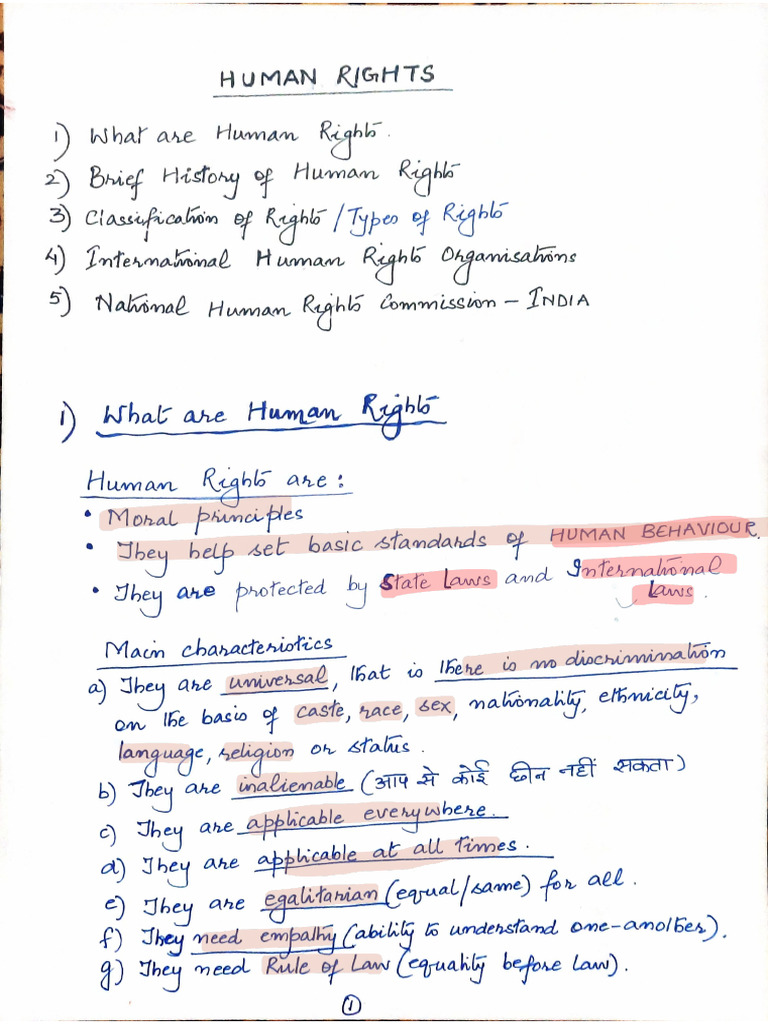 HUMAN RIGHTS
1) What are Human Rights.
2) Brief History of Human Rights
3) Classification of Rights/Types of Rights
4) International Human Rights Organisations
5) National Human Rights Commission - INDIA
1) What are Human Rights
Human Rights are:
• Moral principles
• They help set basic standards of HUMAN BEHAVIOUR.
• They are protected by State Laws and International
Laws.
Main characteristics
a) They are universal, that is there is no discrimination
on the basis of caste, race, sex, nationality, ethnicity,
language, religion or status.
b) They are inalienable (आप से कोई छीन नहीं सकता)
c) They are applicable everywhere.
d) They are applicable at all times.
e) They are egalitarian (equal/same) for all.
f) They need empathy (ability to understand one-another).
g) They need Rule of Law (equality before law).
1